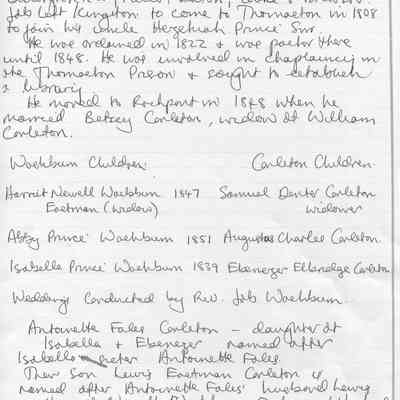 Job left Kingston to come to Thomaston in 1808
to join his uncle Hezekiah Prince Snr.
He was ordained in 1822 & was pastor there
until 1848. He was involved in Chaplaincy in
the Thomaston Prison & sought to establish
a library
He moved to Rockport in 1848 when he
married Betsey Carleton, widow of William
Carleton.
Washburn Children: Carleton Children.
Harriet Newell Washburn 1847 Samuel Dexter Carleton
Eastman (widow) widower
Abby Prince Washburn 1851 Augustus Charles Carleton
Isabella Prince Washburn 1839 Ebenezer Elbridge Carleton
Weddings conducted by Riv. Job Washburn.
Antoinette Fales Carleton – daughter of
Isabella & Ebenezer named after
Isabella sister Antoinette Fales.
Their Son Lewis Eastman Carleton is
named after Antoinette Fales' husband Lewis